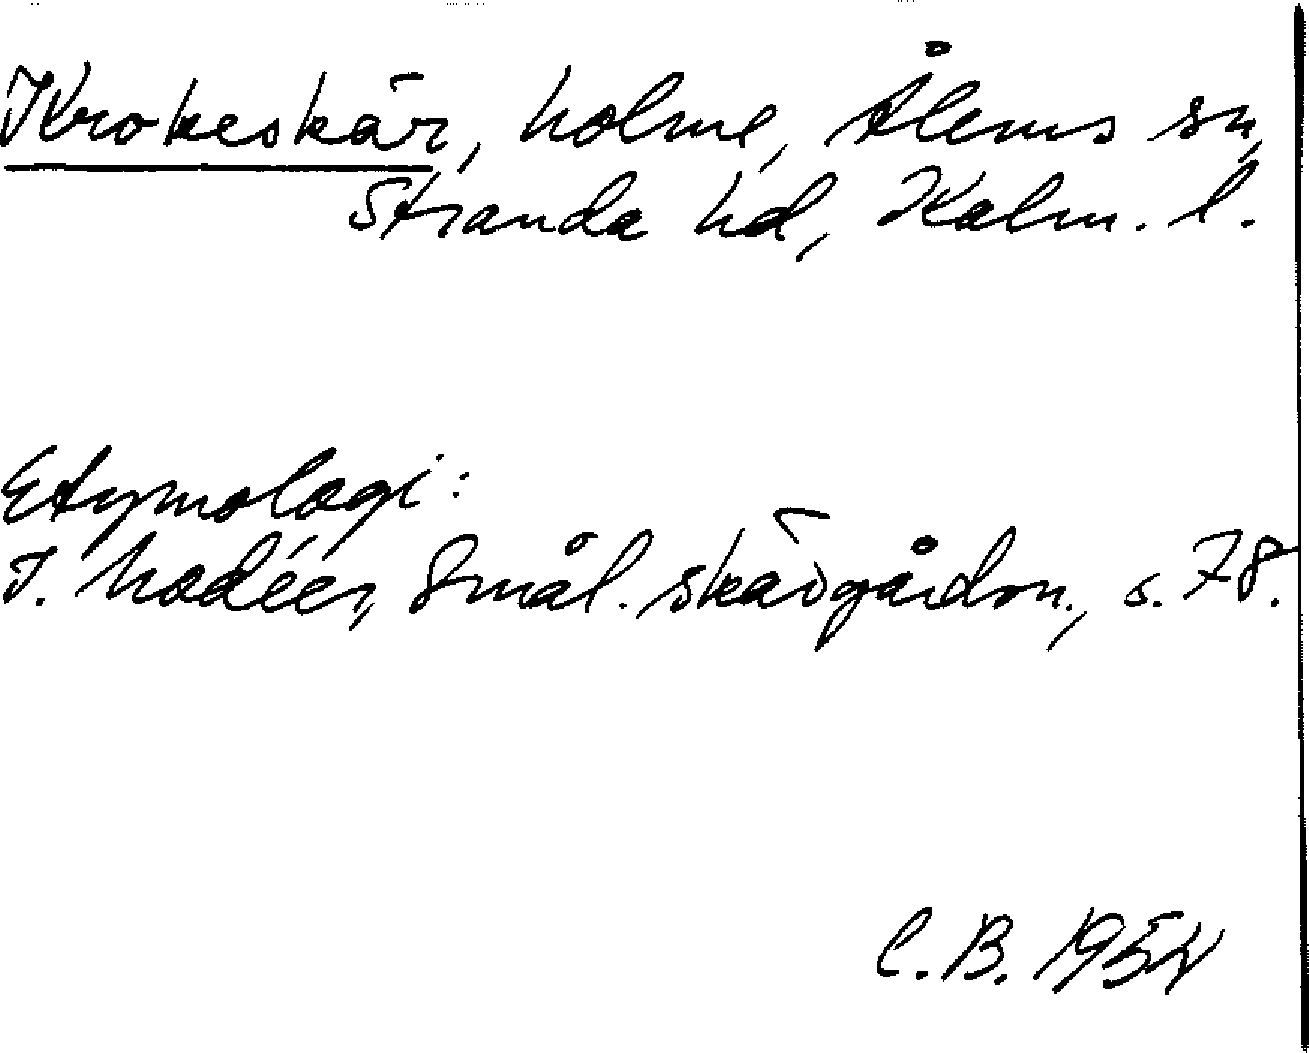 Krokeskär, holme, Ålems sn,
Stranda hd, Kalm. l.
Etymologi:
I. Modéer, Smål. skärgårdsn., s. 78.
C.B. 1954